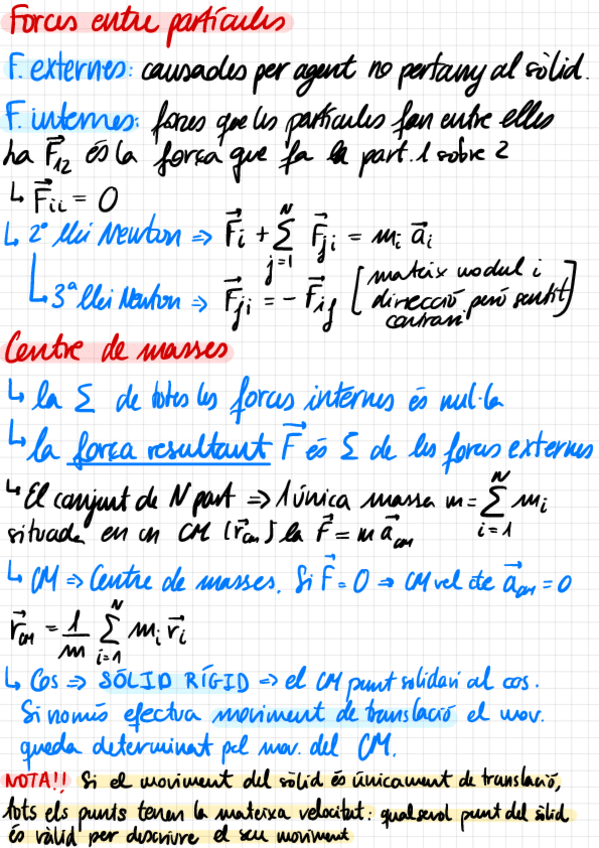 Forces entre partícules
F. externes: causades per agent no pertany al sòlid.
F. internes: forces que les partícules fan entre elles
ha F⃗₁₂ és la força que fa la part. 1 sobre 2
↳ F⃗ᵢᵢ = 0
↳ 2ª llei Newton ⇒ F⃗ᵢ + Σ_{j=1}^{N} F⃗ⱼᵢ = mᵢ a⃗ᵢ
↳ 3ª llei Newton ⇒ F⃗ⱼᵢ = - F⃗ᵢⱼ [mateix mòdul i
direcció però sentit
contrari]
Centre de masses
↳ la Σ de totes les forces internes és nul·la
↳ la força resultant F⃗ és Σ de les forces externes
↳ El conjunt de N part ⇒ 1 única massa m = Σ_{i=1}^{N} mᵢ
situada en un CM (r⃗_CM) la F⃗ = m a⃗_CM
↳ CM ⇒ Centre de masses. Si F⃗ = 0 → CM vel cte a⃗_CM = 0
r⃗_CM = 1/m Σ_{i=1}^{N} mᵢ r⃗ᵢ
↳ Cos ⇒ SÒLID RÍGID ⇒ el CM punt solidari al cos.
Si només efectua moviment de translació el mov.
queda determinat pel mov. del CM.
NOTA!! Si el moviment del sòlid és únicament de translació,
tots els punts tenen la mateixa velocitat: qualsevol punt del sòlid
és vàlid per descriure el seu moviment